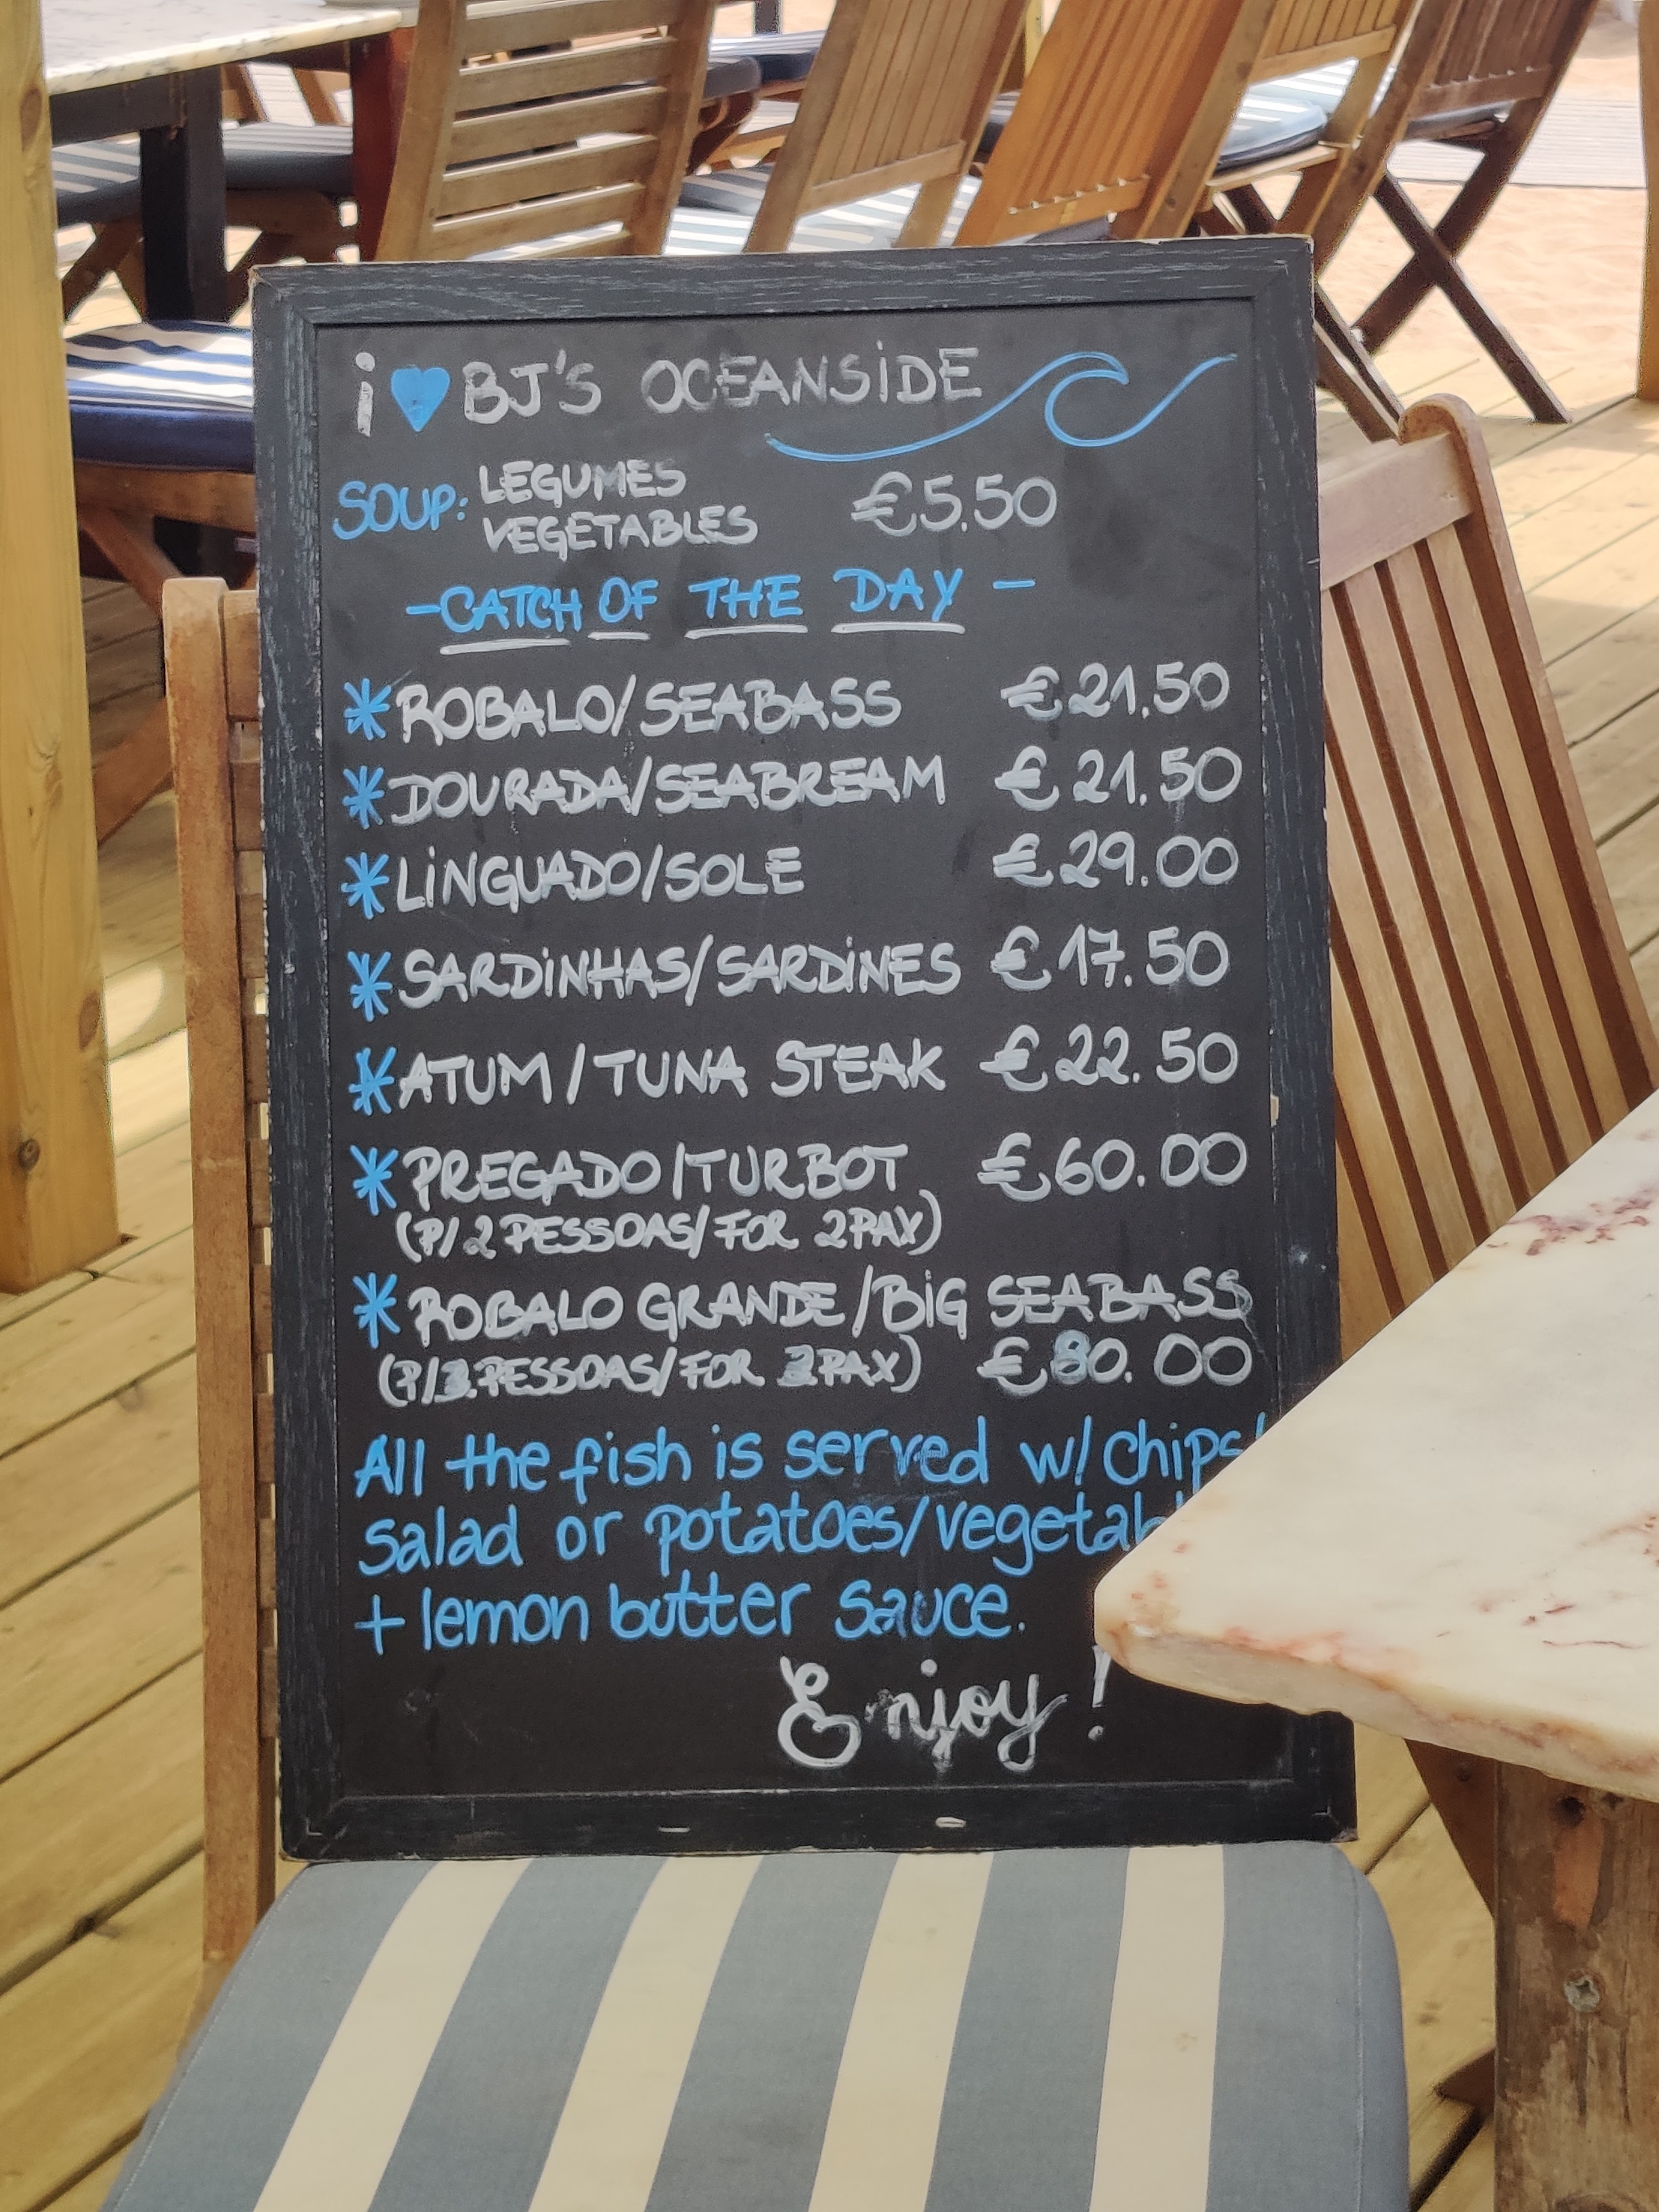 i ♥ BJ'S OCEANSIDE
SOUP: LEGUMES €5.50
VEGETABLES
- CATCH OF THE DAY -
* ROBALO/SEABASS €21.50
* DOURADA/SEABREAM €21.50
* LINGUADO/SOLE €29.00
* SARDINHAS/SARDINES €17.50
* ATUM/TUNA STEAK €22.50
* PREGADO/TURBOT €60.00
(P/2 PESSOAS/FOR 2PAX)
* ROBALO GRANDE/BIG SEABASS
(P/3.PESSOAS/FOR 3PAX) €80.00
All the fish is served w/ chips/
salad or potatoes/vegetab
+ lemon butter sauce.
Enjoy!